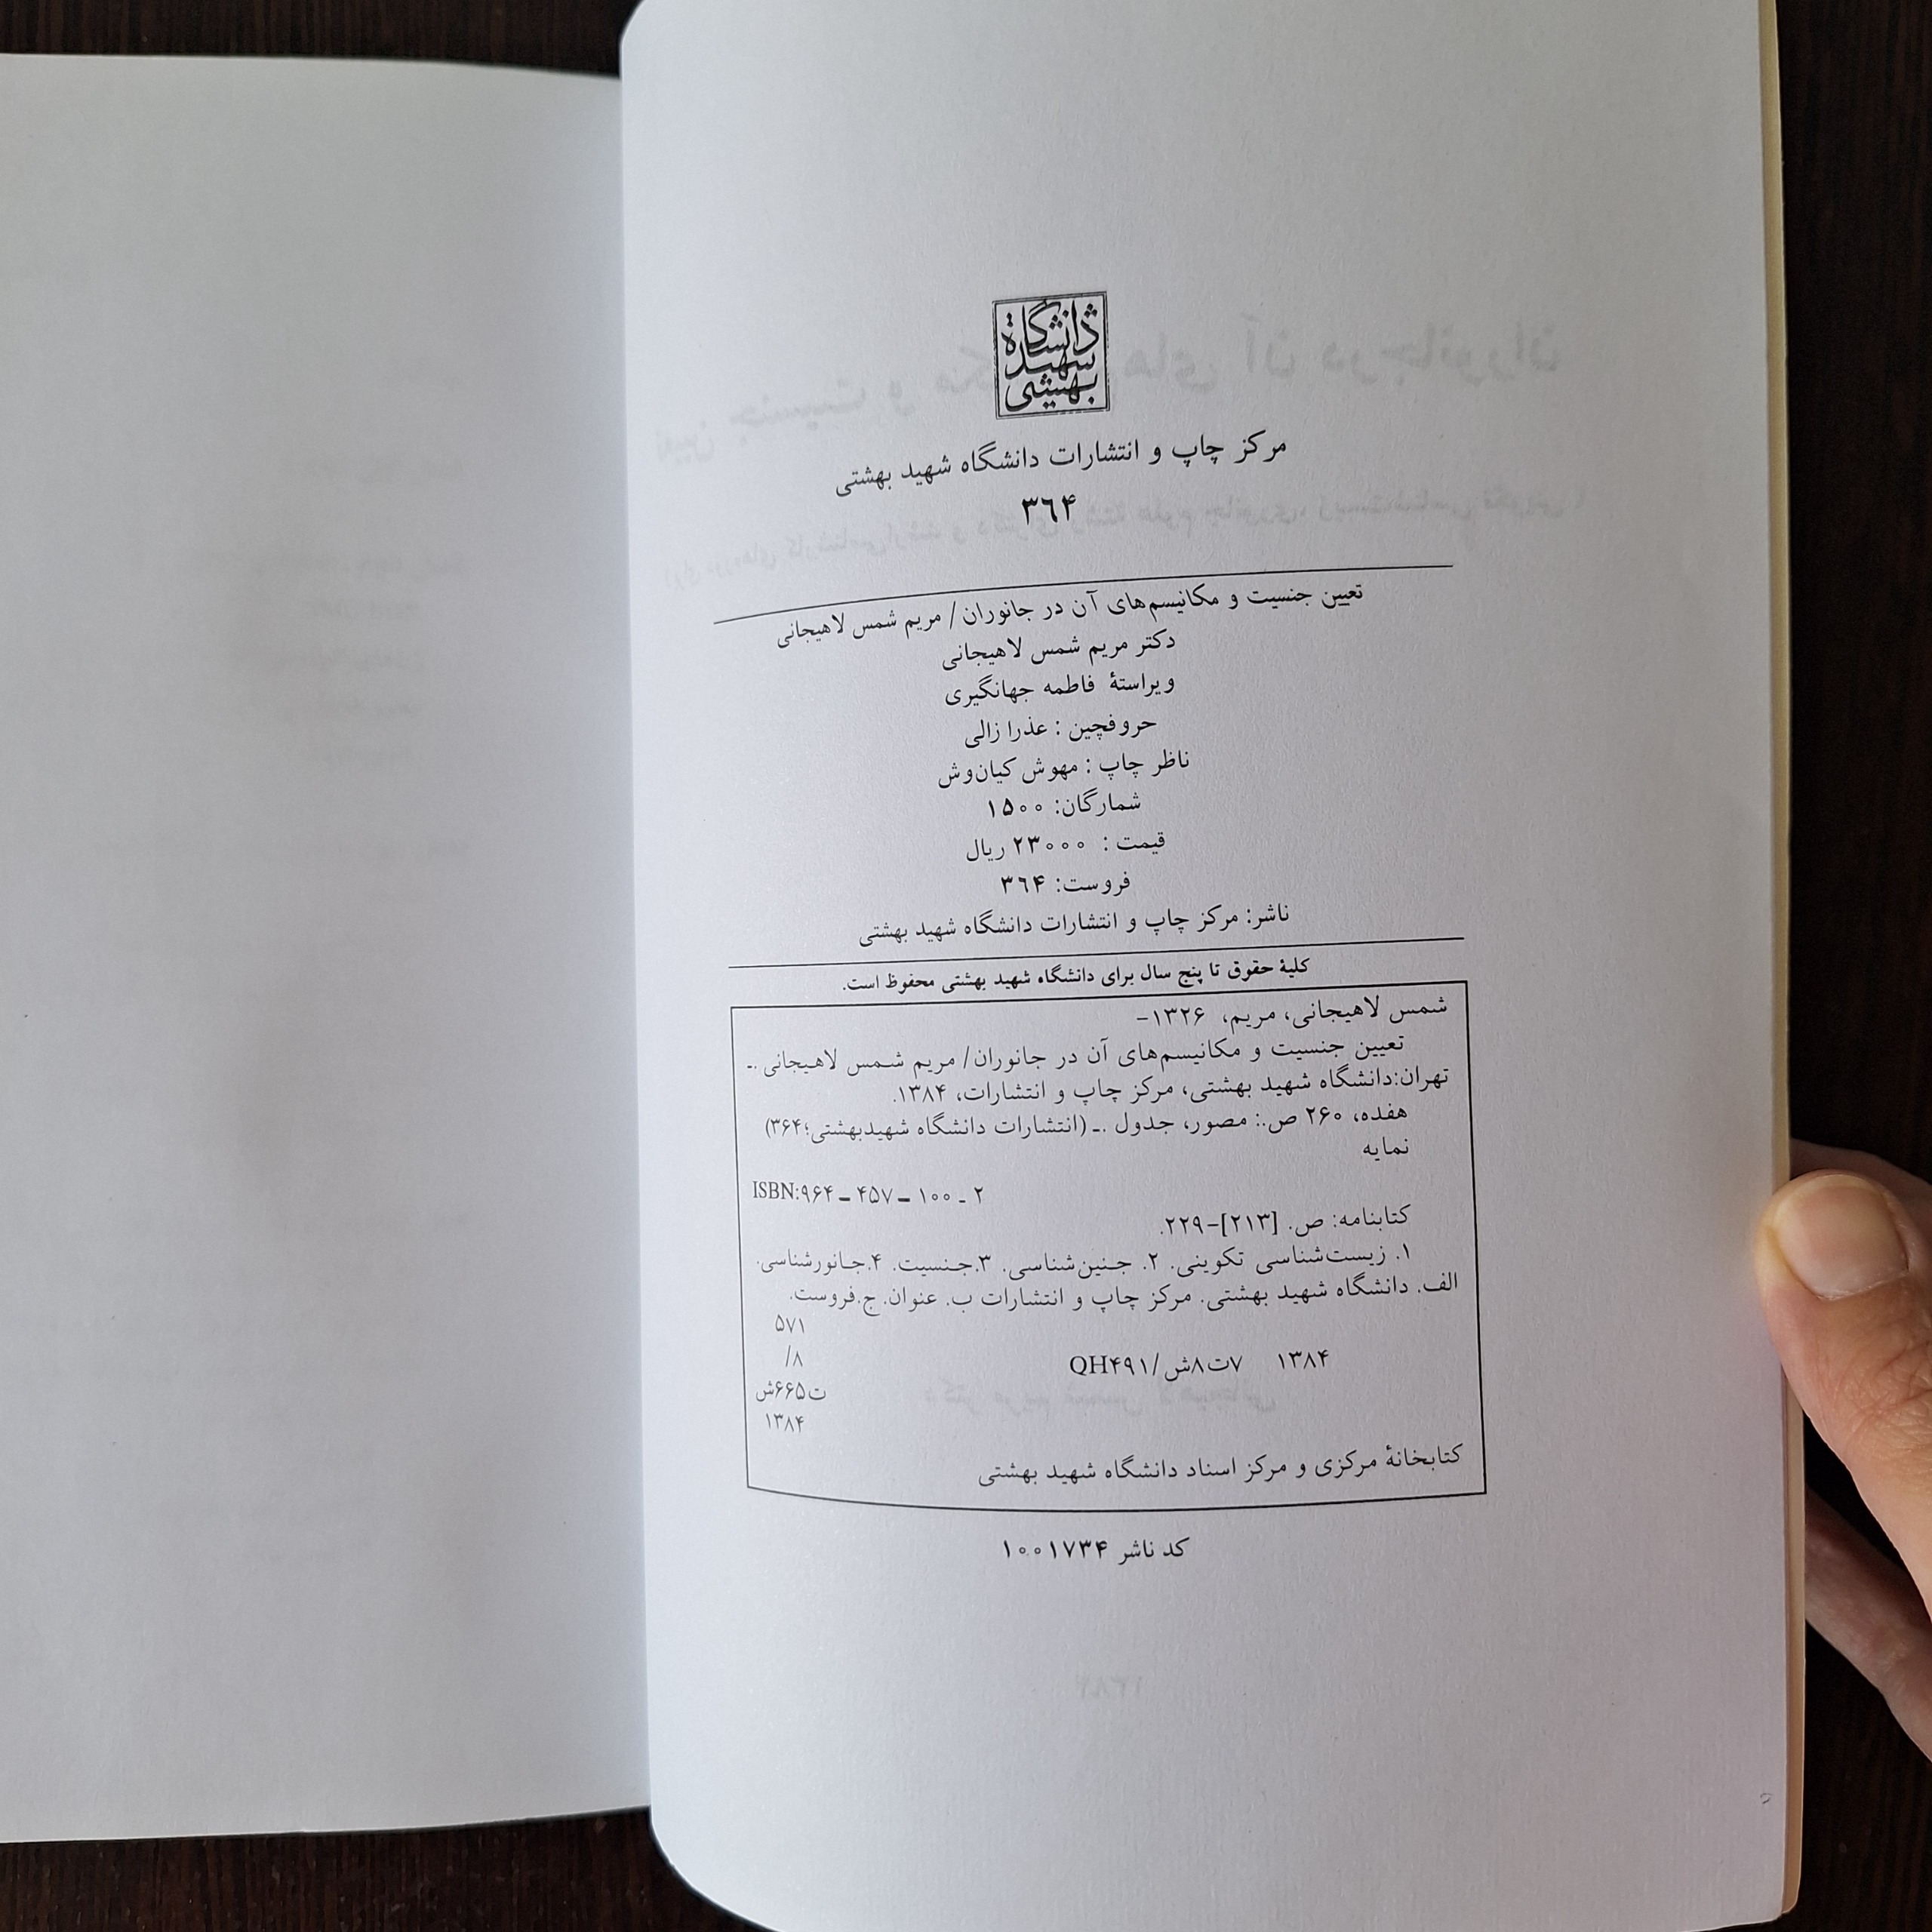 دانشگاه
شهید
بهشتی
مرکز چاپ و انتشارات دانشگاه شهید بهشتی
۳۶۴
تعیین جنسیت و مکانیسم‌های آن در جانوران/ مریم شمس لاهیجانی
دکتر مریم شمس لاهیجانی
ویراستهٔ فاطمه جهانگیری
حروفچین : عذرا زالی
ناظر چاپ : مهوش کیان‌وش
شمارگان: ۱۵۰۰
قیمت : ۲۳۰۰۰ ریال
فروست: ۳۶۴
ناشر: مرکز چاپ و انتشارات دانشگاه شهید بهشتی
کلیهٔ حقوق تا پنج سال برای دانشگاه شهید بهشتی محفوظ است.
شمس لاهیجانی، مریم، ۱۳۲۶–
تعیین جنسیت و مکانیسم‌های آن در جانوران/ مریم شمس لاهیجانی .ـ
تهران:دانشگاه شهید بهشتی، مرکز چاپ و انتشارات، ۱۳۸۴.
هفده، ۲۶۰ ص.: مصور، جدول .ـ (انتشارات دانشگاه شهیدبهشتی؛۳۶۴)
نمایه
ISBN:۹۶۴ ـ ۴۵۷ ـ ۱۰۰ ـ ۲
کتابنامه: ص. [۲۱۳]–۲۲۹.
۱. زیست‌شناسی تکوینی. ۲. جنین‌شناسی. ۳.جنسیت. ۴.جانورشناسی.
الف. دانشگاه شهید بهشتی. مرکز چاپ و انتشارات ب. عنوان. ج.فروست.
۵۷۱
/۸
ت۶۶۵ش
۱۳۸۴
QH۴۹۱/ش۸ت۷ ۱۳۸۴
کتابخانهٔ مرکزی و مرکز اسناد دانشگاه شهید بهشتی
کد ناشر ۱۰۰۱۷۳۴